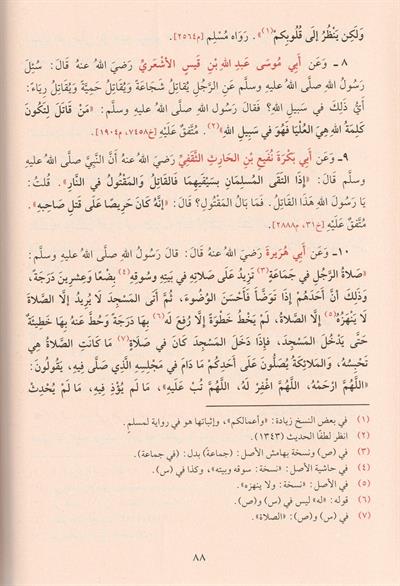 وَلَكِن يَنْظُرُ إلَى قُلُوبِكمْ(١)». رَوَاه مُسْلِم [م٢٥٦٤].
٨ - وَعَن أَبِي مُوسَى عَبدِ اللهِ بْنِ قَيسٍ الأشْعَرِيِّ رَضِيَ اللهُ عنهُ قَالَ: سُئِلَ
رَسُولُ اللهِ صلَّى اللهُ عليهِ وسلَّم عَنِ الرَّجُلِ يُقاتِلُ شَجَاعَةً وَيُقَاتِلُ حَمِيَّةً وَيُقَاتِلُ رِيَاءً:
أيُّ ذلِكَ في سَبِيلِ اللهِ؟ فَقَالَ رَسُول اللهِ صلَّى اللهُ عليهِ وسلَّم: «مَنْ قَاتَلَ لِتَكُونَ
كَلِمَةُ اللهِ هِيَ العُلْيَا فَهُوَ في سَبِيلِ اللهِ»(٢). مُتَّفَقٌ عَلَيْهِ [خ٧٤٥٨، م١٩٠٤].
٩ - وَعَن أبِي بَكْرَةَ نُفَيعِ بْنِ الحَارِثِ الثَّقَفِيِّ رَضِيَ اللهُ عنهُ أَنَّ النَّبِيَّ صلَّى اللهُ عليهِ
وسلَّم قَالَ: «إِذَا التَقَى المُسلِمَانِ بسَيْفَيهِمَا فَالقَاتِلُ وَالمَقْتُولُ في النَّارِ». قُلتُ:
يَا رَسُولَ اللهِ هَذَا القَاتِلُ. فَمَا بَالُ المَقْتُولِ؟ قَالَ: «إنَّهُ كَانَ حَرِيصًا عَلَى قَتلِ صَاحِبهِ».
مُتَّفَقٌ عَلَيْهِ [خ٣١، م٢٨٨٨].
١٠ - وَعَن أبي هُرَيرَةَ رَضِيَ اللهُ عنهُ قَالَ: قالَ رَسُولُ اللهِ صلَّى اللهُ عليهِ وسلَّم:
«صَلاةُ الرَّجُلِ في جَمَاعَةٍ(٣) تَزِيدُ عَلَى صَلاتِهِ في بَيْتِهِ وسُوقِهِ(٤) بِضْعًا وَعِشرِينَ دَرَجَةً،
وَذَلِكَ أنَّ أَحَدَهُمْ إِذَا تَوَضَّأَ فَأَحْسَنَ الوُضُوءَ، ثُمَّ أَتَى المَسْجِدَ لا يُرِيدُ إلَّا الصَّلاةَ
لَا يَنْهَزُهُ(٥) إلَّا الصَّلاةُ، لَمْ يَخْطُ خَطْوَةً إلَّا رُفِعَ لَهُ(٦) بِهَا دَرَجَةٌ وَحُطَّ عَنهُ بِهَا خَطِيئَةٌ
حَتَّى يَدْخُلَ المَسْجِدَ، فإذَا دَخَلَ المَسْجِدَ كَانَ في صَلَاةٍ(٧) مَا كَانَتِ الصَّلاةُ هِيَ
تَحْبِسُهُ، وَالمَلائِكَةُ يُصَلُّونَ عَلَى أَحَدِكُمْ مَا دَامَ في مَجْلِسِهِ الَّذِي صَلَّى فِيهِ، يَقُولُونَ:
«اللَّهُمَّ ارْحَمْهُ، اللَّهُمَّ اغْفِرْ لَهُ، اللَّهُمَّ تُبْ عَلَيهِ»، مَا لَم يُؤْذِ فِيهِ، مَا لَمْ يُحْدِثْ
(١) في بعض النسخ زيادة: «وأعمالكم»، وإثباتها هو في رواية لمسلم.
(٢) انظر لطفًا الحديث (١٣٤٣).
(٣) في (ص) ونسخة بهامش الأصل: (جماعةً) بدل: (في جماعة).
(٤) في حاشية الأصل: «نسخة: سوقه وبيته»، وكذا في (س).
(٥) في الأصل: «نسخة: ولا ينهزه».
(٦) قوله: «له» ليس في (س) و(ص).
(٧) في (س) و(ص): «الصلاة».
٨٨